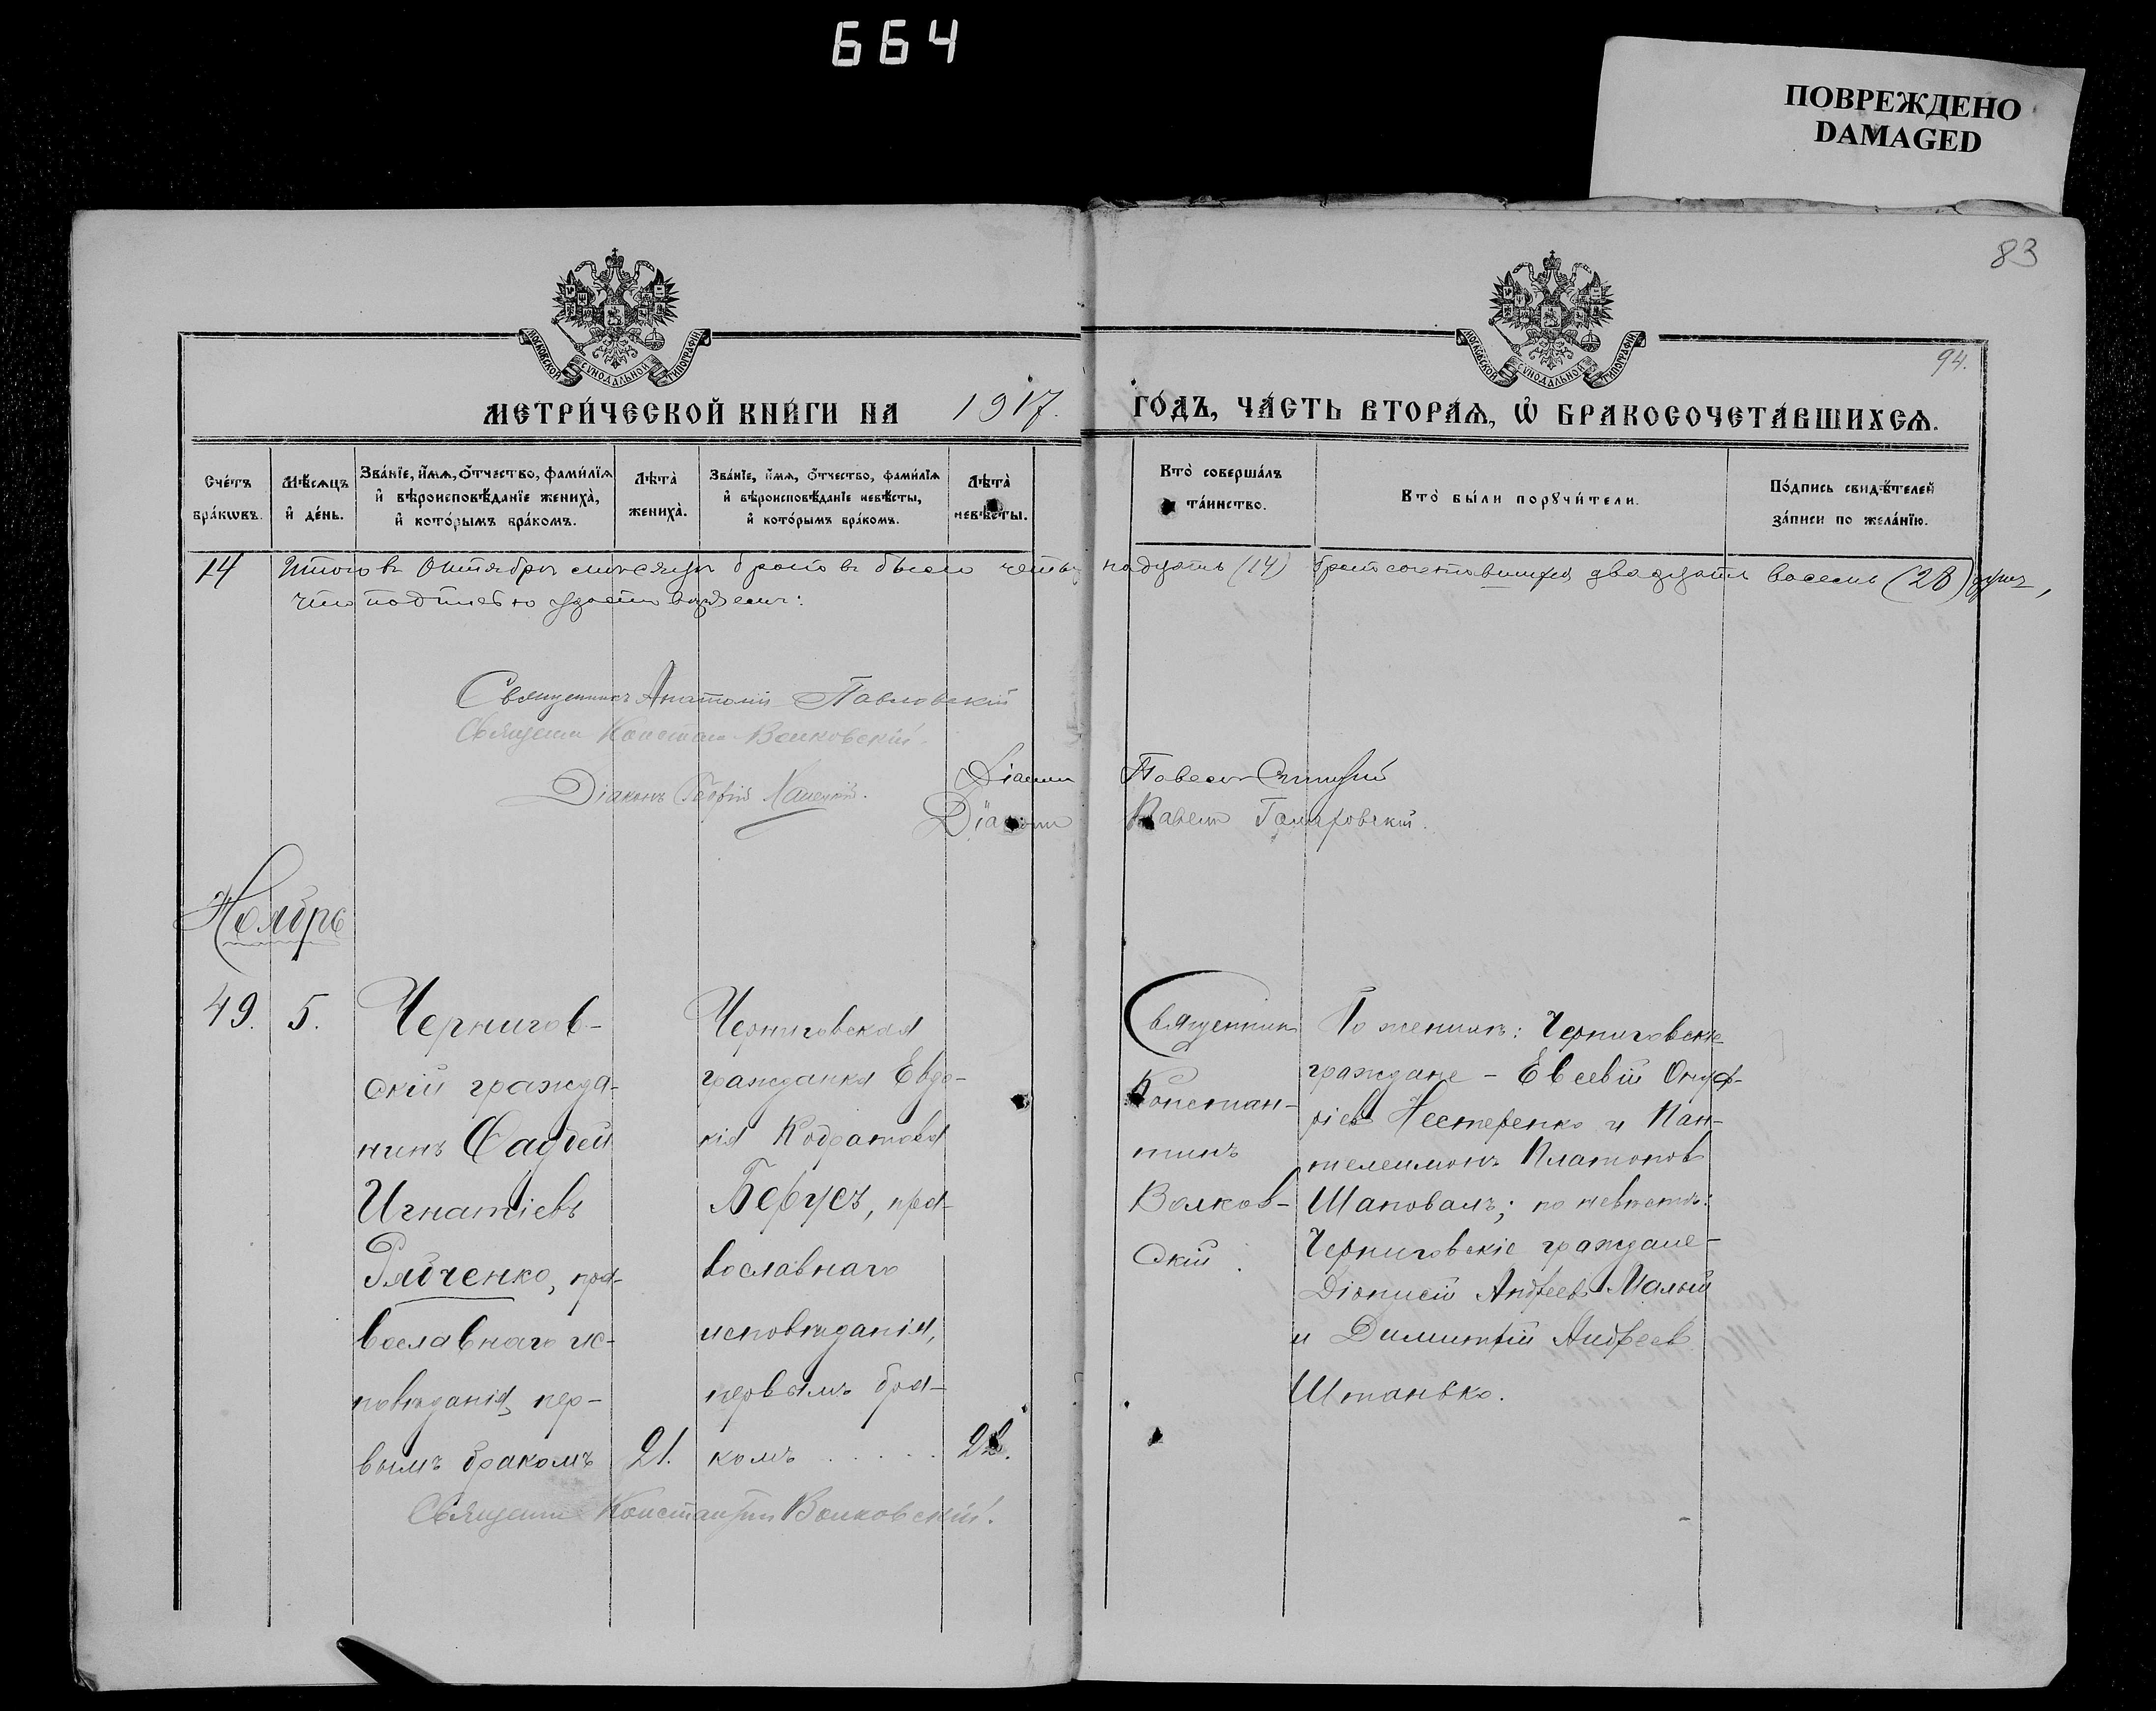 664
ПОВРЕЖДЕНО
DAMAGED
83
94.
МОСКОВСКОЙ СѴНОДАЛЬНОЙ ТИПОГРАФІИ
МОСКОВСКОЙ СѴНОДАЛЬНОЙ ТИПОГРАФІИ
МЕТРИ́ЧЕСКОЙ КНИ́ГИ НА 1917. ГО́ДЪ, ЧА́СТЬ ВТОРА́Я, Ѽ БРАКОСОЧЕТА́ВШИХСѦ.
Сче́тъ бра́кωвъ.
Мѣ́сѧцъ и҆ де́нь.
Зва́нїе, и҆́мѧ, ѻ҆́тчество, фами́лїѧ и҆ вѣроисповѣ́данїе жениха̀, и҆ кото́рымъ бра́комъ.
Лѣта̀ жениха̀.
Зва́нїе, и҆́мѧ, ѻ҆́тчество, фами́лїѧ и҆ вѣроисповѣ́данїе невѣ́сты, и҆ кото́рымъ бра́комъ.
Лѣта̀ невѣ́сты.
Кто̀ соверша́лъ та́инство.
Кто̀ бы́ли порꙋчи́тели.
По́дпись свидѣ́телей за́писи по жела́нїю.
14 Итого въ Октябрѣ мѣсяцѣ браковъ было четырнадцать (14) бракосочетавшихся двадцать восемь (28) душъ,
что подписью удостовѣряемъ:
Священникъ Анатолий Павловскій
Священни Константин Волковскій.
Діаконъ
Діаконъ Павелъ
Діаконъ Павелъ
Ноябрь
49. 5.
Чернигов-
скій гражда-
нинъ Фаддей
Игнатіевъ
Рябченко, пра-
вославнаго ис-
повѣданія, пер-
вымъ бракомъ 21.
Черниговская
гражданка Евдо-
кія Кодратова
Берусъ, пра-
вославнаго
исповѣданія,
первымъ бра-
комъ . . . . 22.
Священник
Констан-
тинъ
Волков-
скій.
По женихѣ: Черниговскіе
граждане – Евсевій Онуф-
ріев Нестеренко и Пан-
телеимонъ Платонов
Шаповалъ; по невѣстѣ:
Черниговскіе граждане –
Діонисій Андреев Малый
и Димитрій Андреев
Штанько.
Священник Константин Волковскій.